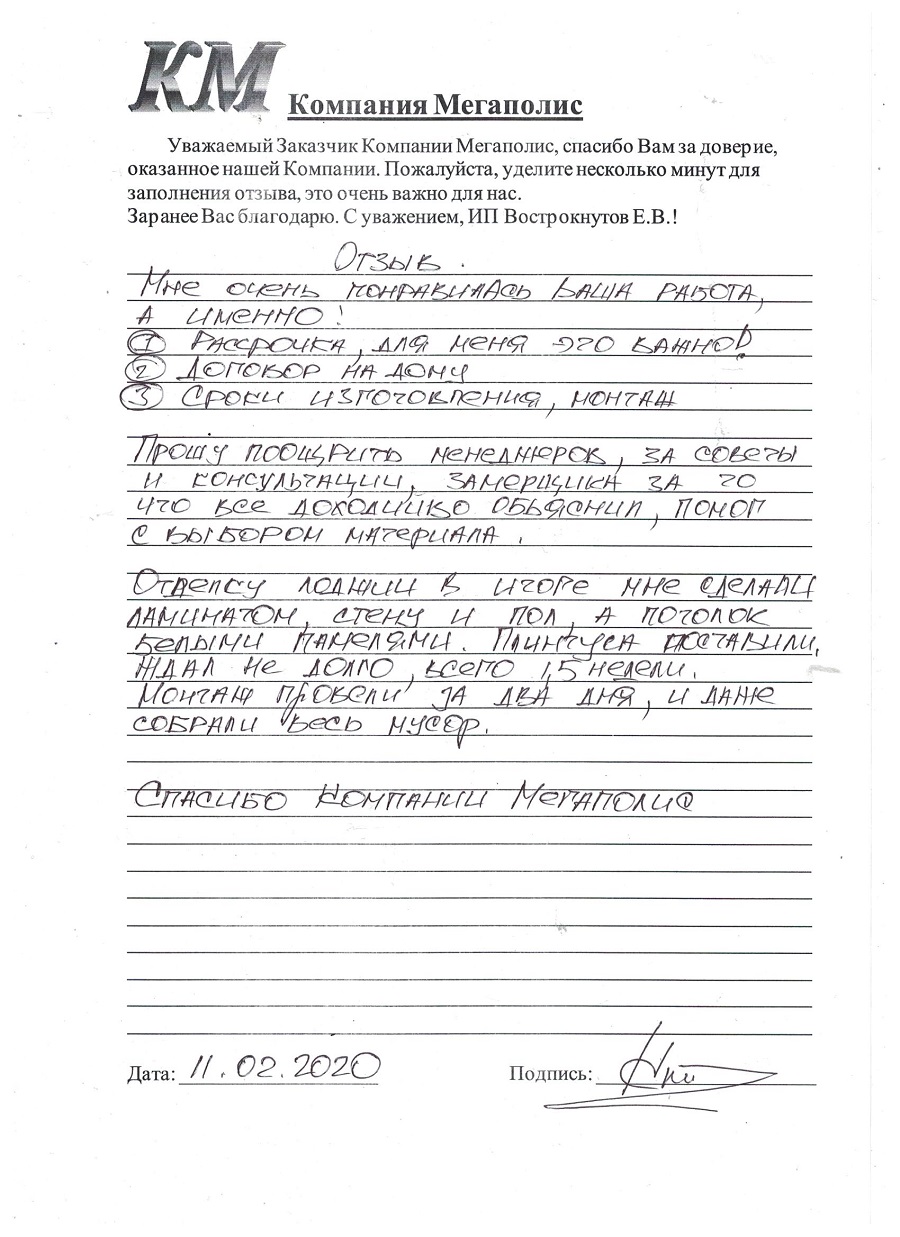 КМ Компания Мегаполис
Уважаемый Заказчик Компании Мегаполис, спасибо Вам за доверие,
оказанное нашей Компании. Пожалуйста, уделите несколько минут для
заполнения отзыва, это очень важно для нас.
Заранее Вас благодарю. С уважением, ИП Вострокнутов Е.В.!
Отзыв.
Мне очень понравилась Ваша работа,
а именно!
1 Рассрочка, для меня это важно!
2 Договор на дому
3 Сроки изготовления, монтаж
Прошу поощрить менеджеров, за советы
и консультации, замерщика за то
что все доходчиво объяснил, помог
с выбором материала.
Отделку лоджии в игоре мне сделали
ламинатом, стену и пол, а потолок
белыми панелями. Плинтуса поставили,
ждал не долго, всего 1,5 недели.
Монтаж провели за два дня, и даже
собрали весь мусор.
Спасибо Компании Мегаполис
Дата: 11.02.2020 Подпись: